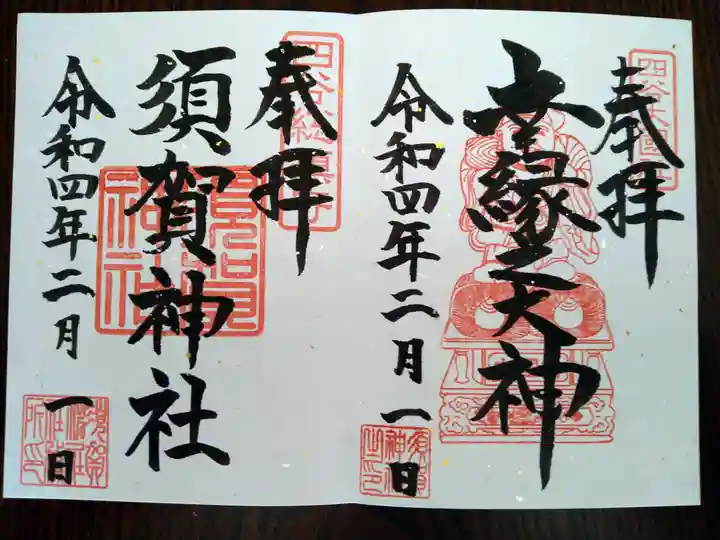 四谷大國
奉拝
幸縁之大神
令和四年二月一日
四谷總鎮守
奉拝
須賀神社
須賀神社
令和四年二月一日